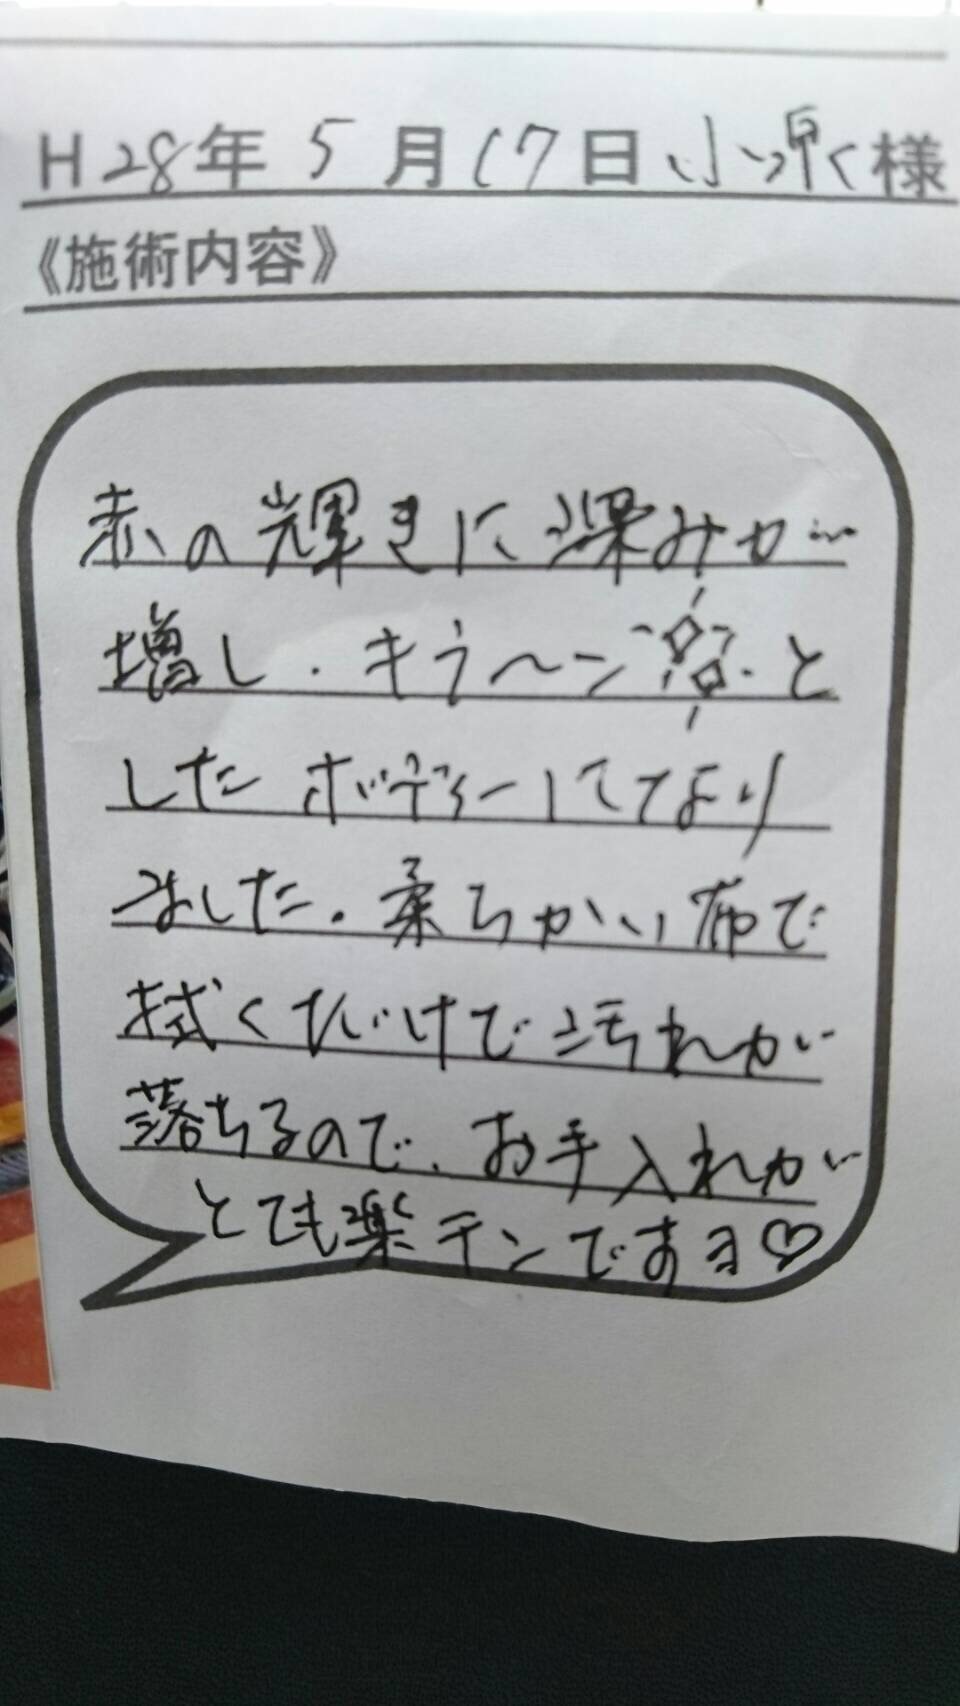 H28年 5月17日 小泉様
《施術内容》
赤の輝きに深みが
増し、キラ〜ン と
したボディーにてなり
ました。柔らかい布で
拭くだけで汚れが
落ちるので、お手入れが
とても楽チンですヨ♡